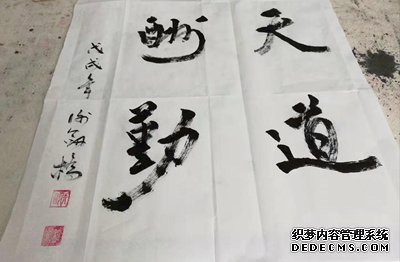 天道
酬勤
戊戌年
织梦内容管理系统
DEDECMS.COM